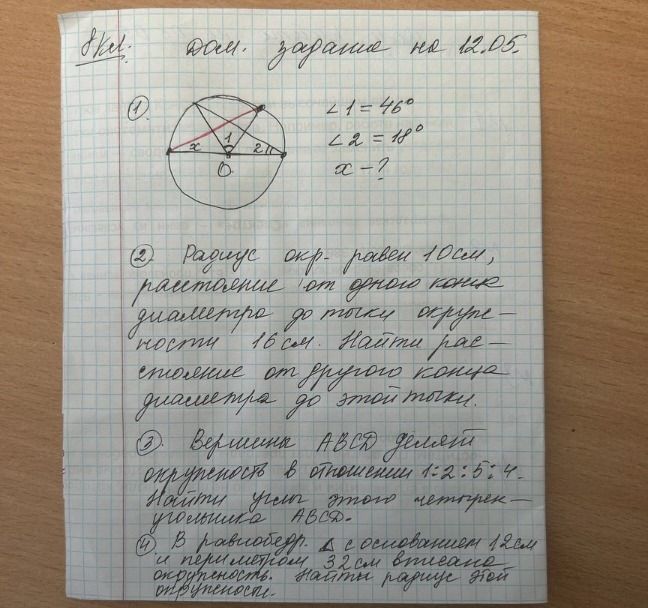 8 кл. Дом. задание на 12.05.
① ∠1 = 46°
∠2 = 18°
x - ?
x 1 2
O
② Радиус окр. равен 10 см,
расстояние от одного конца
диаметра до точки окруж-
ности 16 см. Найти рас-
стояние от другого конца
диаметра до этой точки.
③ Вершины ABCD делят
окружность в отношении 1:2:5:4.
Найти углы этого четырех-
угольника ABCD.
④ В равнобедр. △ с основанием 12 см
и периметром 32 см вписана
окружность. Найти радиус этой
окружности.